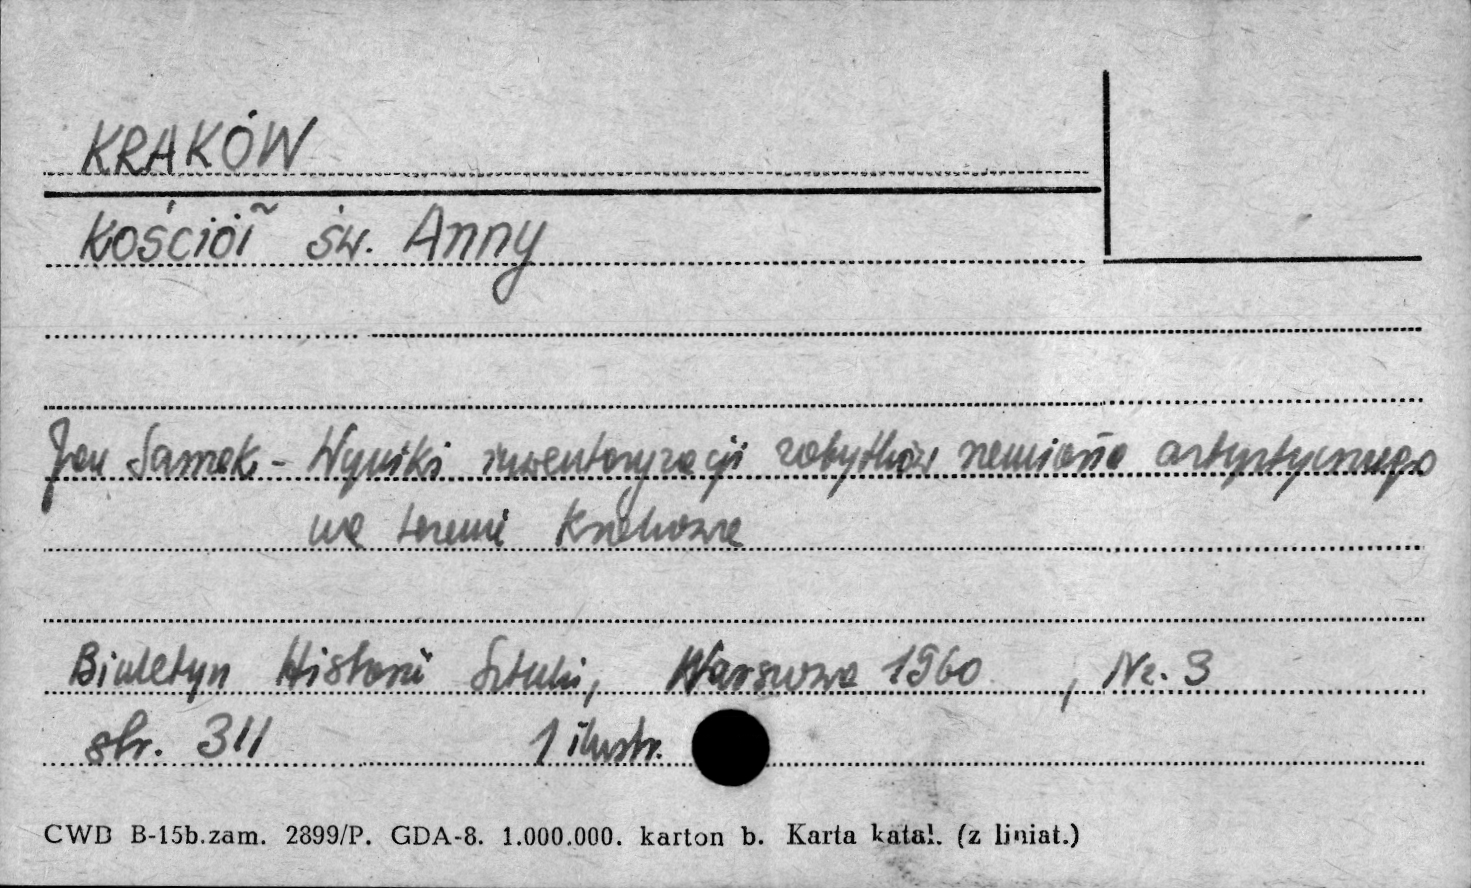 KRAKÓW
Kościół św. Anny
Jan Samek - Wyniki inwentaryzacji zabytków rzemiosła artystycznego
na terenie Krakowa
Biuletyn Historii Sztuki, Warszawa 1960, Nr. 3
str. 311 1 ilustr.
CWD B-15b.zam. 2899/P. GDA-8. 1.000.000. karton b. Karta katal. (z liniat.)